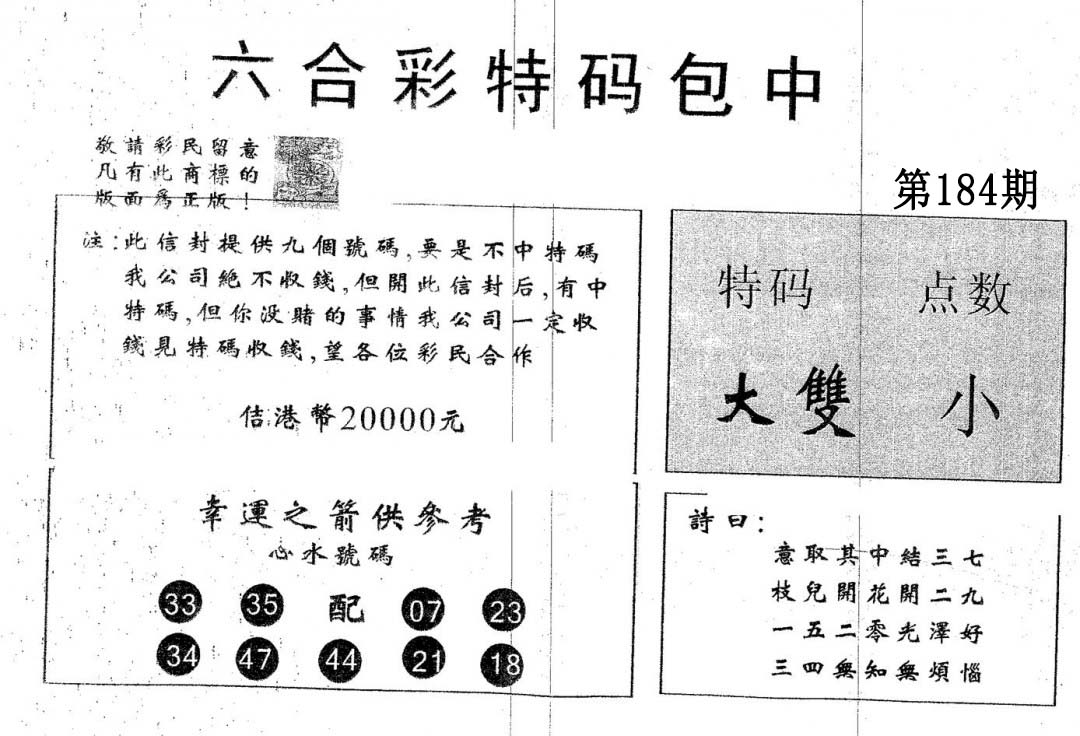 六合彩特码包中
敬請彩民留意
凡有此商標的
版面爲正版！
第184期
注：此信封提供九個號碼，要是不中特碼
我公司絶不收錢，但開此信封后，有中
特碼，但你没賭的事情我公司一定收
錢見特碼收錢，望各位彩民合作
佶港幣20000元
特码 点数
大雙 小
幸運之箭供參考
心水號碼
33 35 配 07 23
34 47 44 21 18
詩曰：
意取其中結三七
枝兒開花開二九
一五二零光澤好
三四無知無煩惱